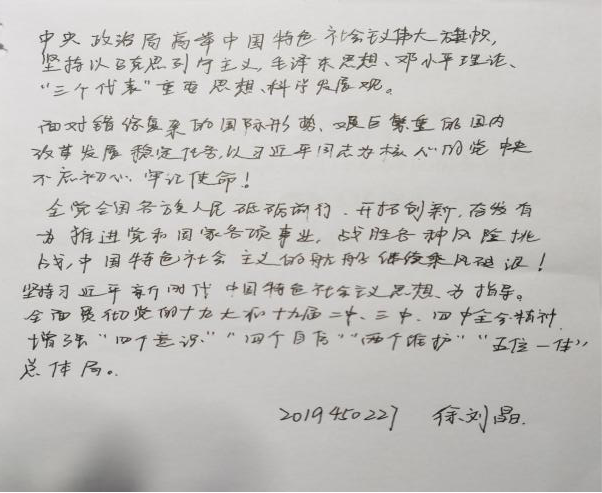 中央政治局高举中国特色社会主义伟大旗帜,
坚持以马克思列宁主义,毛泽东思想、邓小平理论、
“三个代表”重要思想、科学发展观。
面对错综复杂的国际形势、艰巨繁重的国内
改革发展稳定任务,以习近平同志为核心的党中央
不忘初心、牢记使命!
全党全国各族人民砥砺前行、开拓创新,奋发有
为推进党和国家各项事业,战胜各种风险挑
战,中国特色社会主义的航船继续乘风破浪!
坚持习近平新时代中国特色社会主义思想、为指导。
全面贯彻党的十九大和十九届二中、三中、四中全会精神,
增强“四个意识”“四个自信”“两个维护”“五位一体”
总体局。
2019450227 徐刘晶.